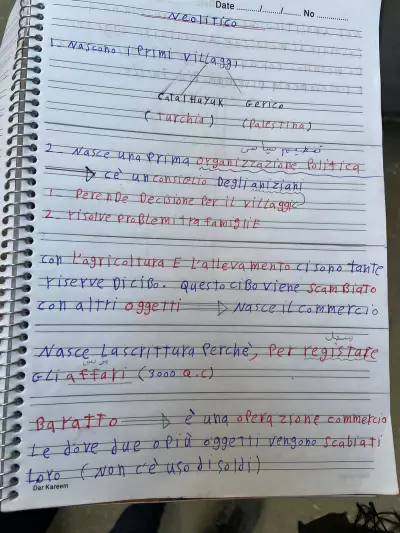 Date ........../......../........ No ..............
NEOLITICO
1. NASCONO i PRIMI VILLAGGi
CATALHUYUK GERICO
(TURCHIA) (PALESTINA)
تنظيم سياسي
2. NASCE UNA PRIMA ORGANIZZAZIONE POLITICA
CÈ UN CONSIGLIO DEGLI ANIZIANI
1. PERENDE DECISIONE PER IL VILLAGGIO
2. RISOLVE PROBLEMI TRA FAMIGLIE
CON L'AGRICOLTURA E L'ALLEVAMENTO CI SONO TANTE
RISERVE DI CIBO. QUESTO CIBO VIENE SCAMBIATO
CON ALTRI OGGETTI NASCE IL COMMERCIO
يسجل
NASCE LA SCRITTURA PERCHÈ, PER REGISTARE
GLI AFFARI (3000 a.C)
BARATTO È UNA OPERAZIONE COMMERCIO
LE DOVE DUE O PIÙ OGGETTI VENGONO SCABIATI
LORO (NON C'È USO DI SOLDI)
Dar Kareem